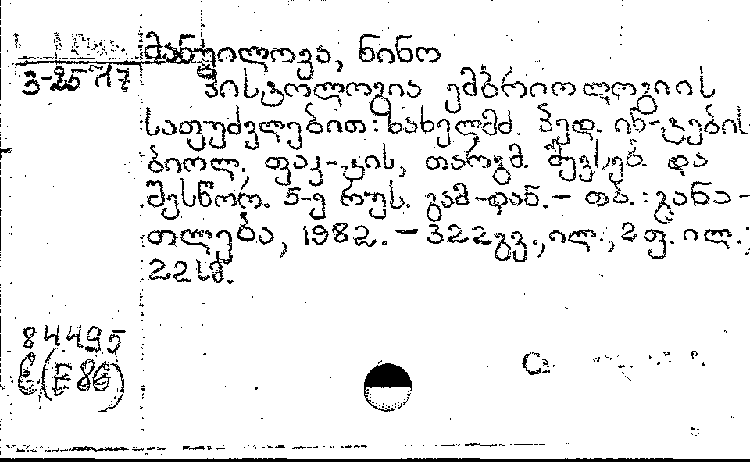 მანუილოვა, ნინო
3-25717
ჰისტოლოგია ემბრიოლოგიის
საფუძვლებით: სახელმძ. პედ. ინ-ტების
ბიოლ. ფაკ-ტის, თარგმ. შევს, ებ. და
შესწორ. 5-ე რუს. გამ-დან. - თბ. : განა-
თლება, 1982. - 322 გვ., ილ., 2 ფ. ილ.;
22 სმ.
84495